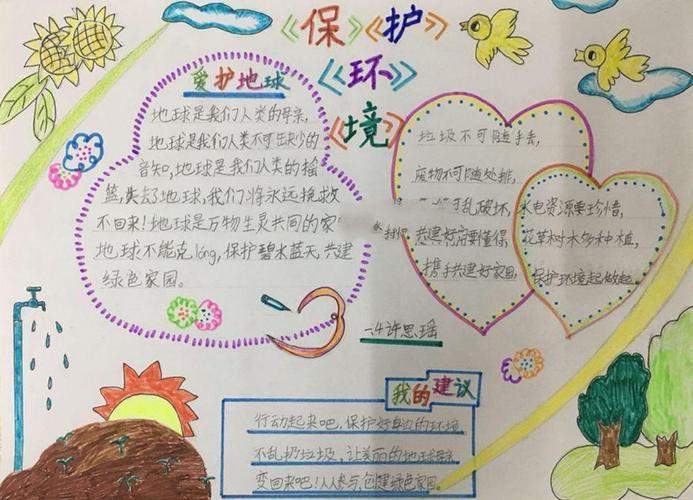 《保护》
《环》
《境》
爱护地球
地球是我们人类的母亲,
地球是我们人类不可缺少的
音知,地球是我们人类的摇
篮,失去地球,我们将永远挽救
不回来!地球是万物生灵共同的家
地球不能克lóng,保护碧水蓝天 共建
绿色家园。
垃圾不可随手丢,
废物不可随处排,
可乱破坏,水电资源要珍惜,
共建好 要懂得,花草树木勿种植,
携手共建好家园,保护环境起做起。
一4许思瑶
我的建议
行动起来吧,保护好身边的环境
不乱扔垃圾,让美丽的地球
变回来吧!人人参与,创建绿色家园。